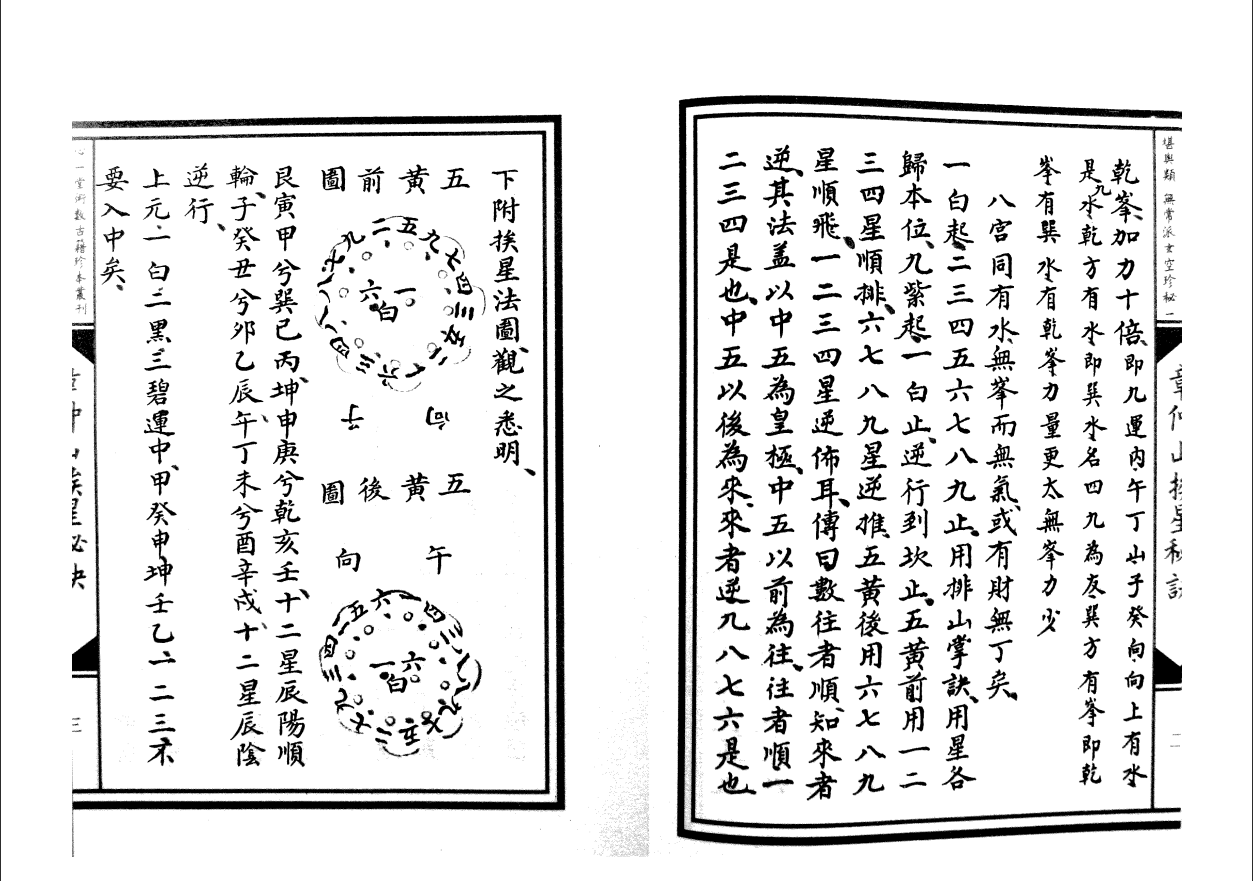 堪輿類 無常派玄空珍秘 一
章仲山挨星秘訣
二
乾峯加力十倍即九運內午丁山子癸向向上有水
是九水乾方有水即巽水名四九為友巽方有峯即乾
峯有巽水有乾峯力量更太無峯力少
八宮同有水無峯而無氣或有財無丁矣
一白起二三四五六七八九止用排山掌訣用星各
歸本位九紫起一白止逆行到坎止五黃前用一二
三四星順排六七八九星逆推五黃後用六七八九
星順飛一二三四星逆佈耳傳曰數往者順知來者
逆其法蓋以中五為皇極中五以前為往往者順一
二三四是也中五以後為來來者逆九八七六是也
下附挨星法圖觀之悉明
五黃前圖
一白
六
向
子
五黃後圖
午
向
六白
一
艮寅甲兮巽巳丙坤申庚兮乾亥壬十二星辰陽順
輪子癸丑兮卯乙辰午丁未兮酉辛戍十二星辰陰
逆行
上元一白二黑三碧運中甲癸申坤壬乙一二三不
要入中矣
心一堂術數古籍珍本叢刊
章仲山挨星秘訣
三